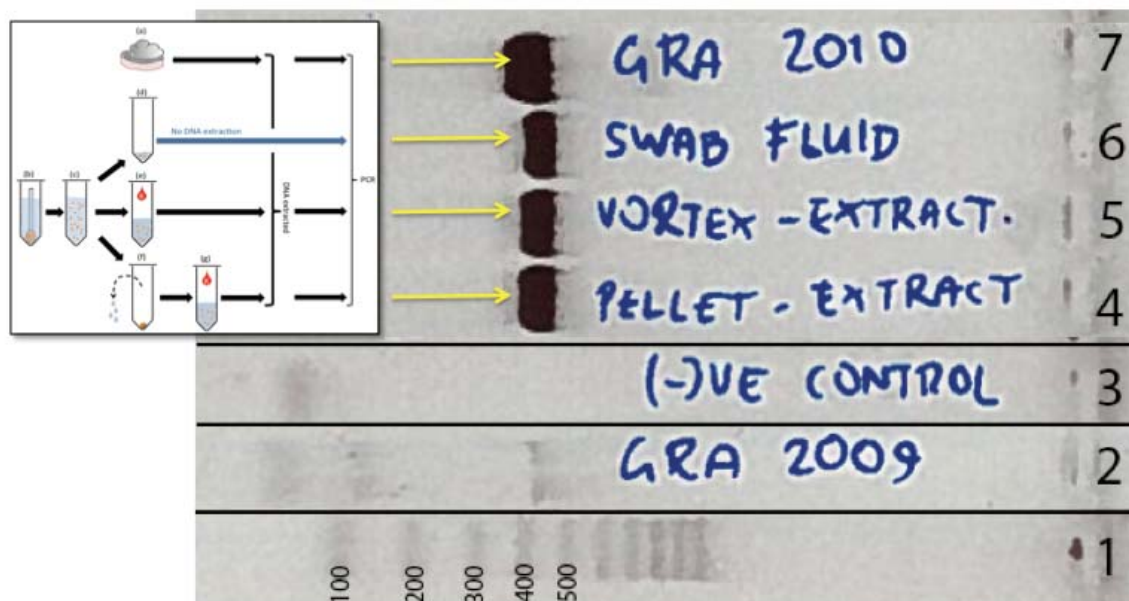 (a)
(d)
No DNA extraction
(b)
(c)
(e)
(f)
(g)
DNA extracted
PCR
GRA 2010
7
SWAB FLUID
6
VORTEX - EXTRACT.
5
PELLET - EXTRACT
4
(-)VE CONTROL
3
GRA 2009
2
100
200
300
400
500
1